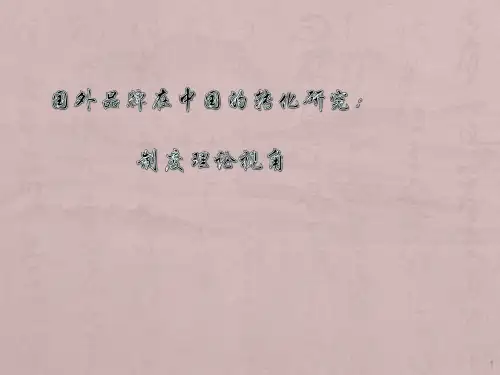 国外品牌在中国的转化研究：
制度理论视角
1